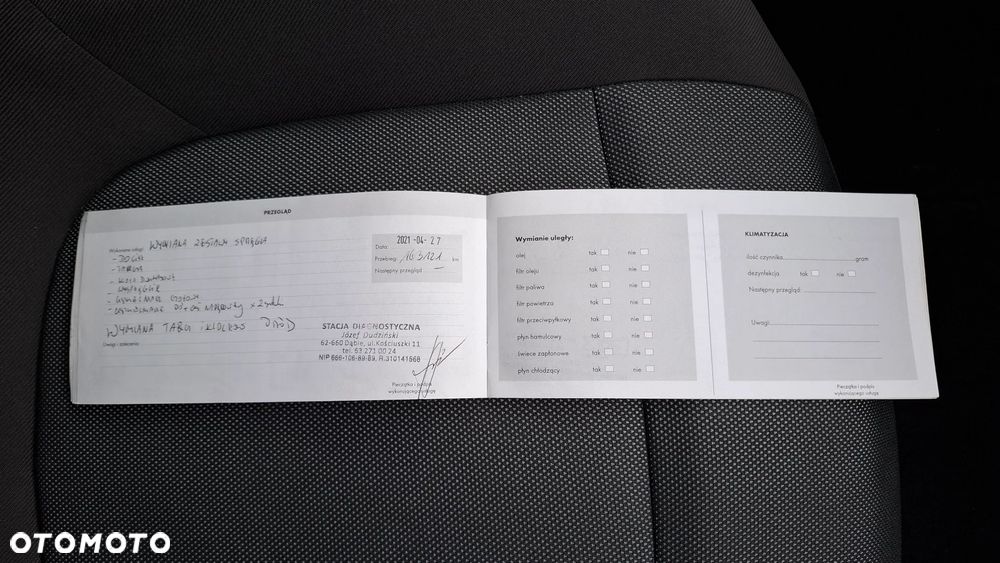 PRZEGLĄD
Wykonane usługi: WYMIANA ZESTAWU SPRZĘGŁA
- DOCISK
- TARCZA
- KOŁO
WYMIANA TARCZ I KLOCKÓW PRZÓD
Uwagi i zalecenia:
Data: 2021-04-27
Przebieg: 163121 km
Następny przegląd: —
STACJA DIAGNOSTYCZNA
Józef Dudziński
62-660 Dąbie, ul.Kościuszki 11
tel. 63 271 00 24
NIP 666-106-89-89, R.310141668
Pieczątka i podpis
wykonującego usługę
Wymianie uległy:
olej tak nie
filtr oleju tak nie
filtr paliwa tak nie
filtr powietrza tak nie
filtr przeciwpyłkowy tak nie
płyn hamulcowy tak nie
świece zapłonowe tak nie
płyn chłodzący tak nie
KLIMATYZACJA
ilość czynnika gram
dezynfekcja tak nie
Następny przegląd:
Uwagi:
Pieczątka i podpis
wykonującego usługę
OTOMOTO